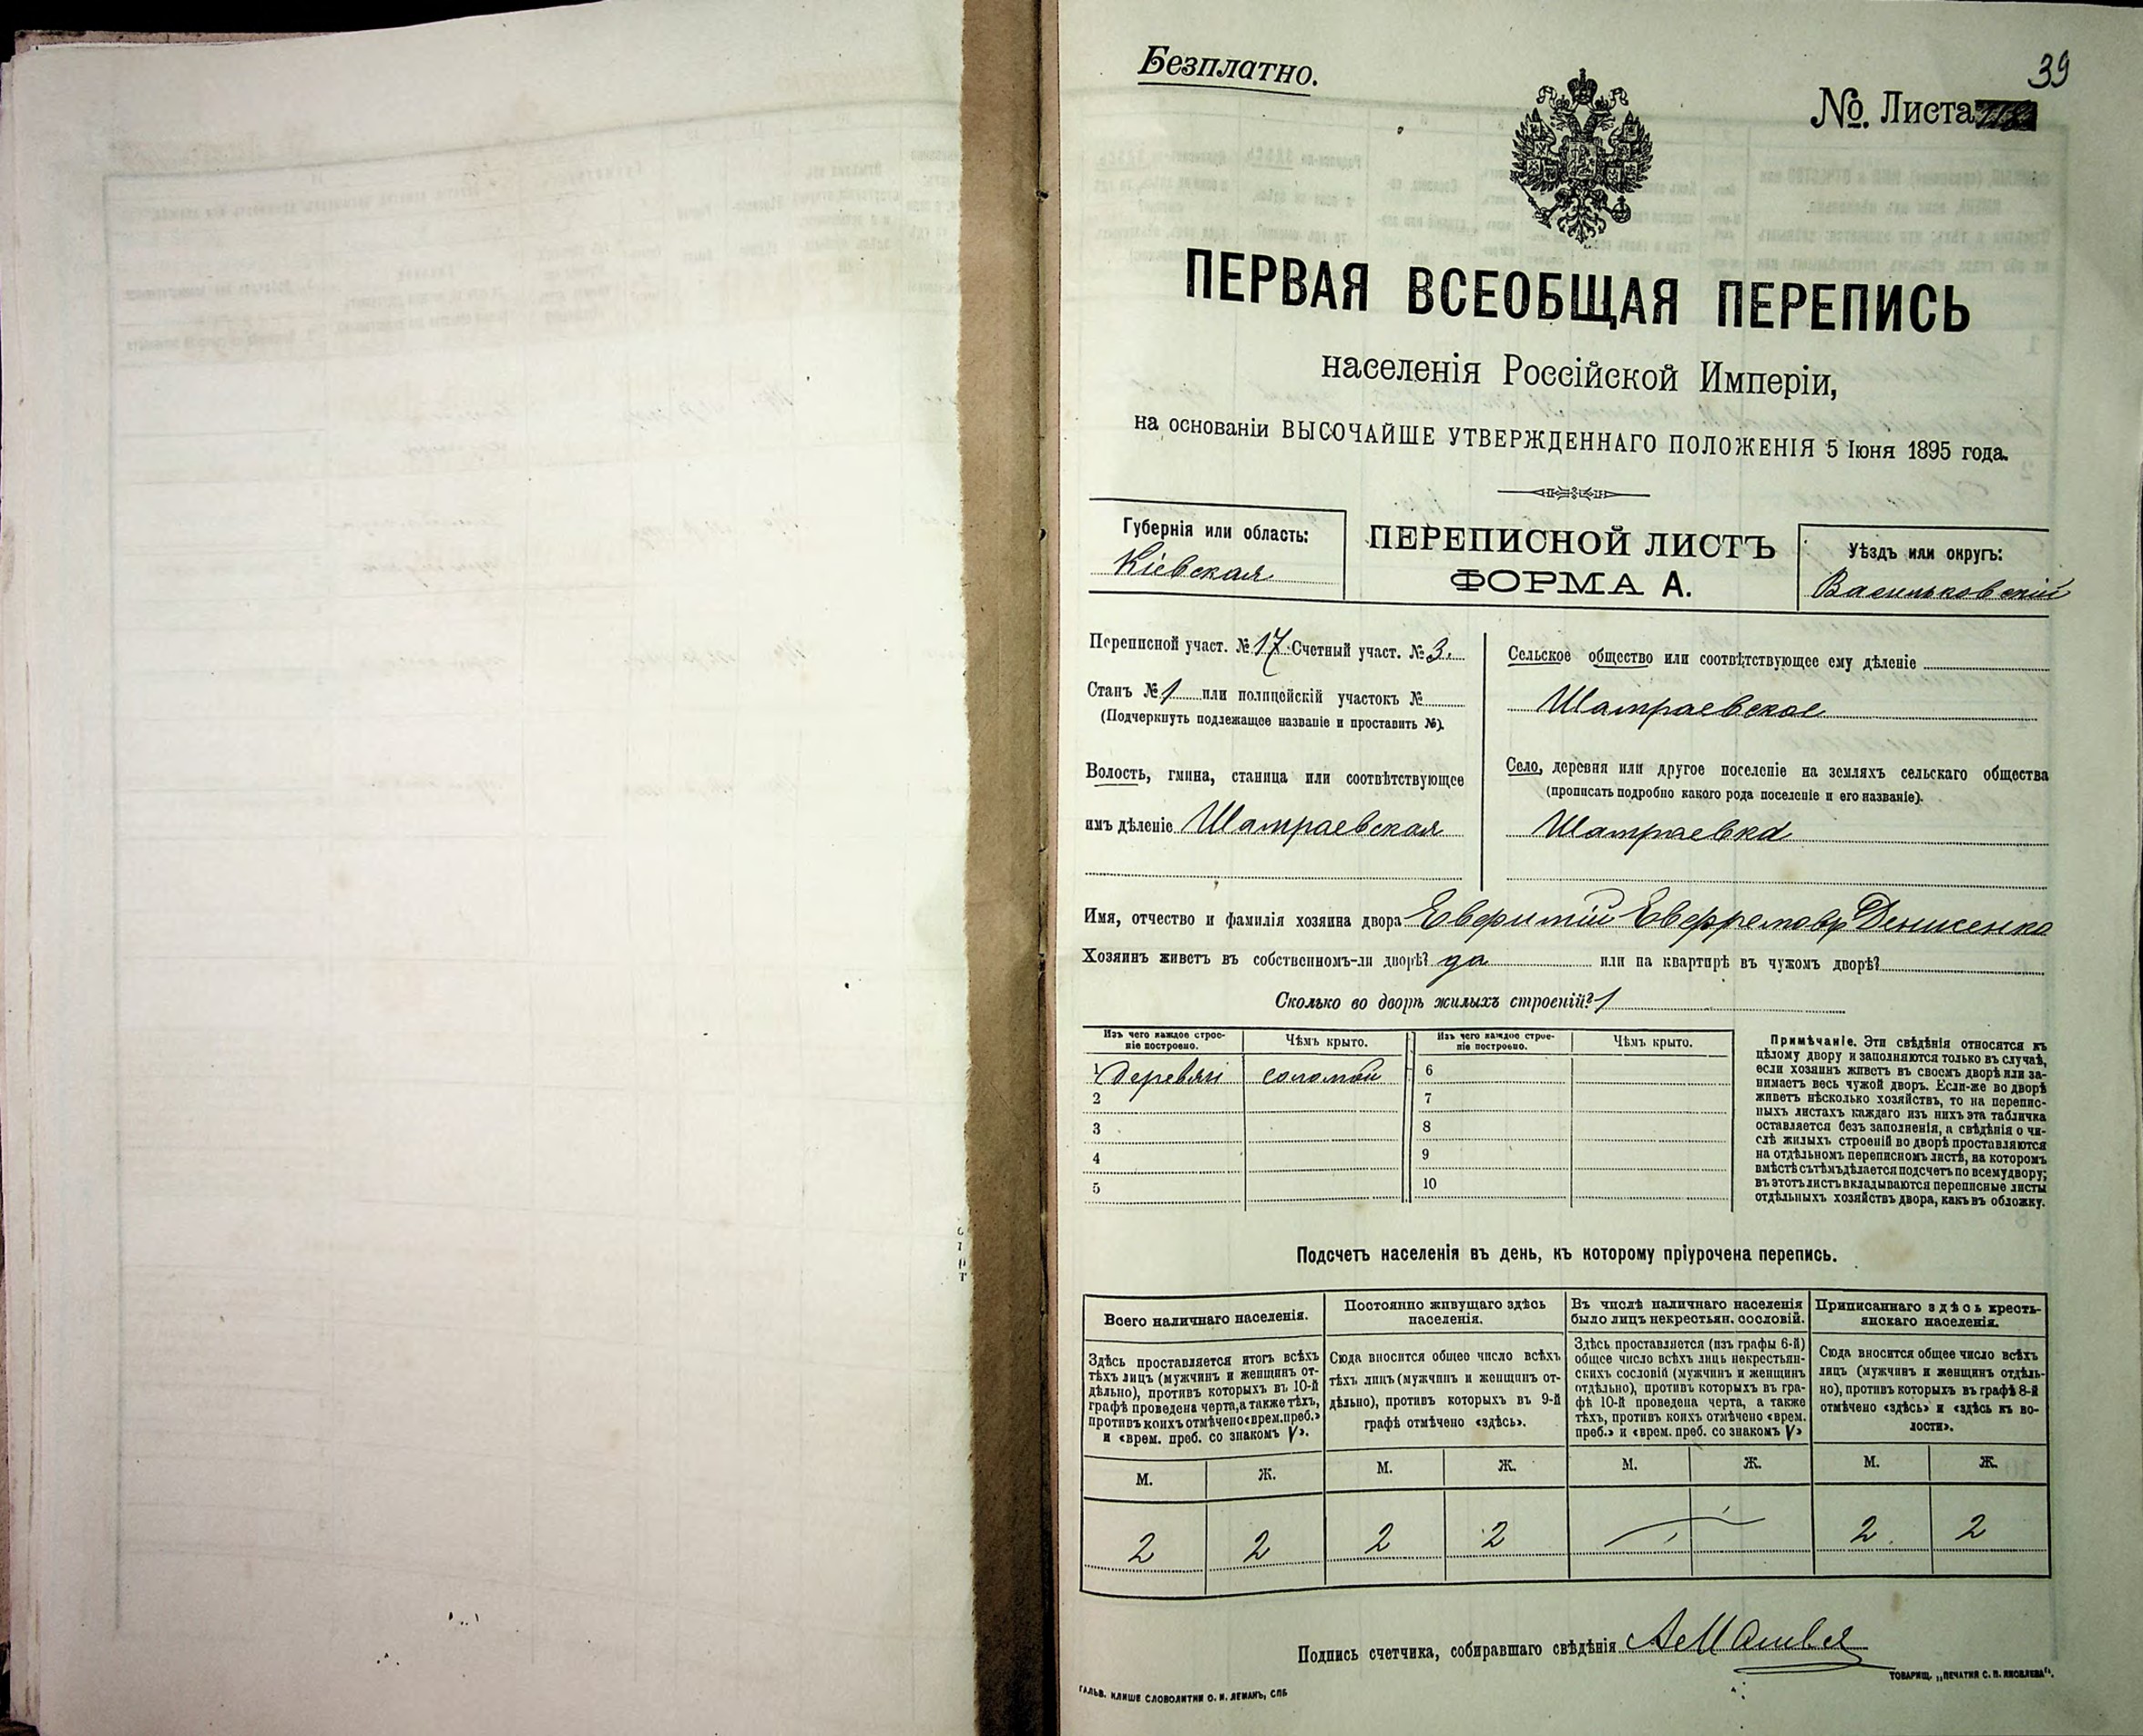 39
Безплатно.
№. Листа
ПЕРВАЯ ВСЕОБЩАЯ ПЕРЕПИСЬ
населенія Россійской Имперіи,
на основаніи ВЫСОЧАЙШЕ УТВЕРЖДЕННАГО ПОЛОЖЕНІЯ 5 Іюня 1895 года.
Губернія или область:
Кіевская
ПЕРЕПИСНОЙ ЛИСТЪ
ФОРМА А.
Уѣздъ или округъ:
Васильковскій
Переписной участ. № 17 Счетный участ. № 3.
Станъ № 1 или полицейскій участокъ №
(Подчеркнуть подлежащее названіе и проставить №).
Волость, гмина, станица или соотвѣтствующее
имъ дѣленіе Шамраевская
Сельское общество или соотвѣтствующее ему дѣленіе
Шамраевское
Село, деревня или другое поселеніе на земляхъ сельскаго общества
(прописать подробно какого рода поселеніе и его названіе).
Шамраевка
Имя, отчество и фамилія хозяина двора Евфимій Евфремовъ Денисенко
Хозяинъ живетъ въ собственномъ-ли дворѣ? да или на квартирѣ въ чужомъ дворѣ?
Сколько во дворѣ жилыхъ строеній? 1
Изъ чего каждое строе-
ніе построено.
Чѣмъ крыто.
Изъ чего каждое строе-
ніе построено.
Чѣмъ крыто.
1 деревяні соломой 6
2 7
3 8
4 9
5 10
Примѣчаніе. Эти свѣдѣнія относятся къ
цѣлому двору и заполняются только въ случаѣ,
если хозяинъ живетъ въ своемъ дворѣ или за-
нимаетъ весь чужой дворъ. Если-же во дворѣ
живетъ нѣсколько хозяйствъ, то на перепис-
ныхъ листахъ каждаго изъ нихъ эта табличка
оставляется безъ заполненія, а свѣдѣнія о чи-
слѣ жилыхъ строеній во дворѣ проставляются
на отдѣльномъ переписномъ листѣ, на которомъ
вмѣстѣ съ тѣмъ дѣлается подсчетъ по всему двору;
въ этотъ листъ вкладываются переписные листы
отдѣльныхъ хозяйствъ двора, какъ въ обложку.
Подсчетъ населенія въ день, къ которому пріурочена перепись.
Всего наличнаго населенія.
Здѣсь проставляется итогъ всѣхъ
тѣхъ лицъ (мужчинъ и женщинъ от-
дѣльно), противъ которыхъ въ 10-й
графѣ проведена черта, а также тѣхъ,
противъ коихъ отмѣчено «врем. преб.»
и «врем. преб. со знакомъ V».
Постоянно живущаго здѣсь
населенія.
Сюда вносится общее число всѣхъ
тѣхъ лицъ (мужчинъ и женщинъ от-
дѣльно), противъ которыхъ въ 9-й
графѣ отмѣчено «здѣсь».
Въ числѣ наличнаго населенія
было лицъ некрестьян. сословій.
Здѣсь проставляется (изъ графы 6-й)
общее число всѣхъ лицъ некрестьян-
скихъ сословій (мужчинъ и женщинъ
отдѣльно), противъ которыхъ въ гра-
фѣ 10-й проведена черта, а также
тѣхъ, противъ коихъ отмѣчено «врем.
преб.» и «врем. преб. со знакомъ V»
Приписаннаго здѣсь кресть-
янскаго населенія.
Сюда вносится общее число всѣхъ
лицъ (мужчинъ и женщинъ отдѣль-
но), противъ которыхъ въ графѣ 8-й
отмѣчено «здѣсь» и «здѣсь къ во-
лости».
М. Ж. М. Ж. М. Ж. М. Ж.
2 2 2 2 2 2
Подпись счетчика, собиравшаго свѣдѣнія
ГАЛЬВ. КЛИШЕ СЛОВОЛИТНИ О. И. ЛЕМАНЪ, СПБ
ТОВАРИЩ. „ПЕЧАТНЯ С. П. ЯКОВЛЕВА“.